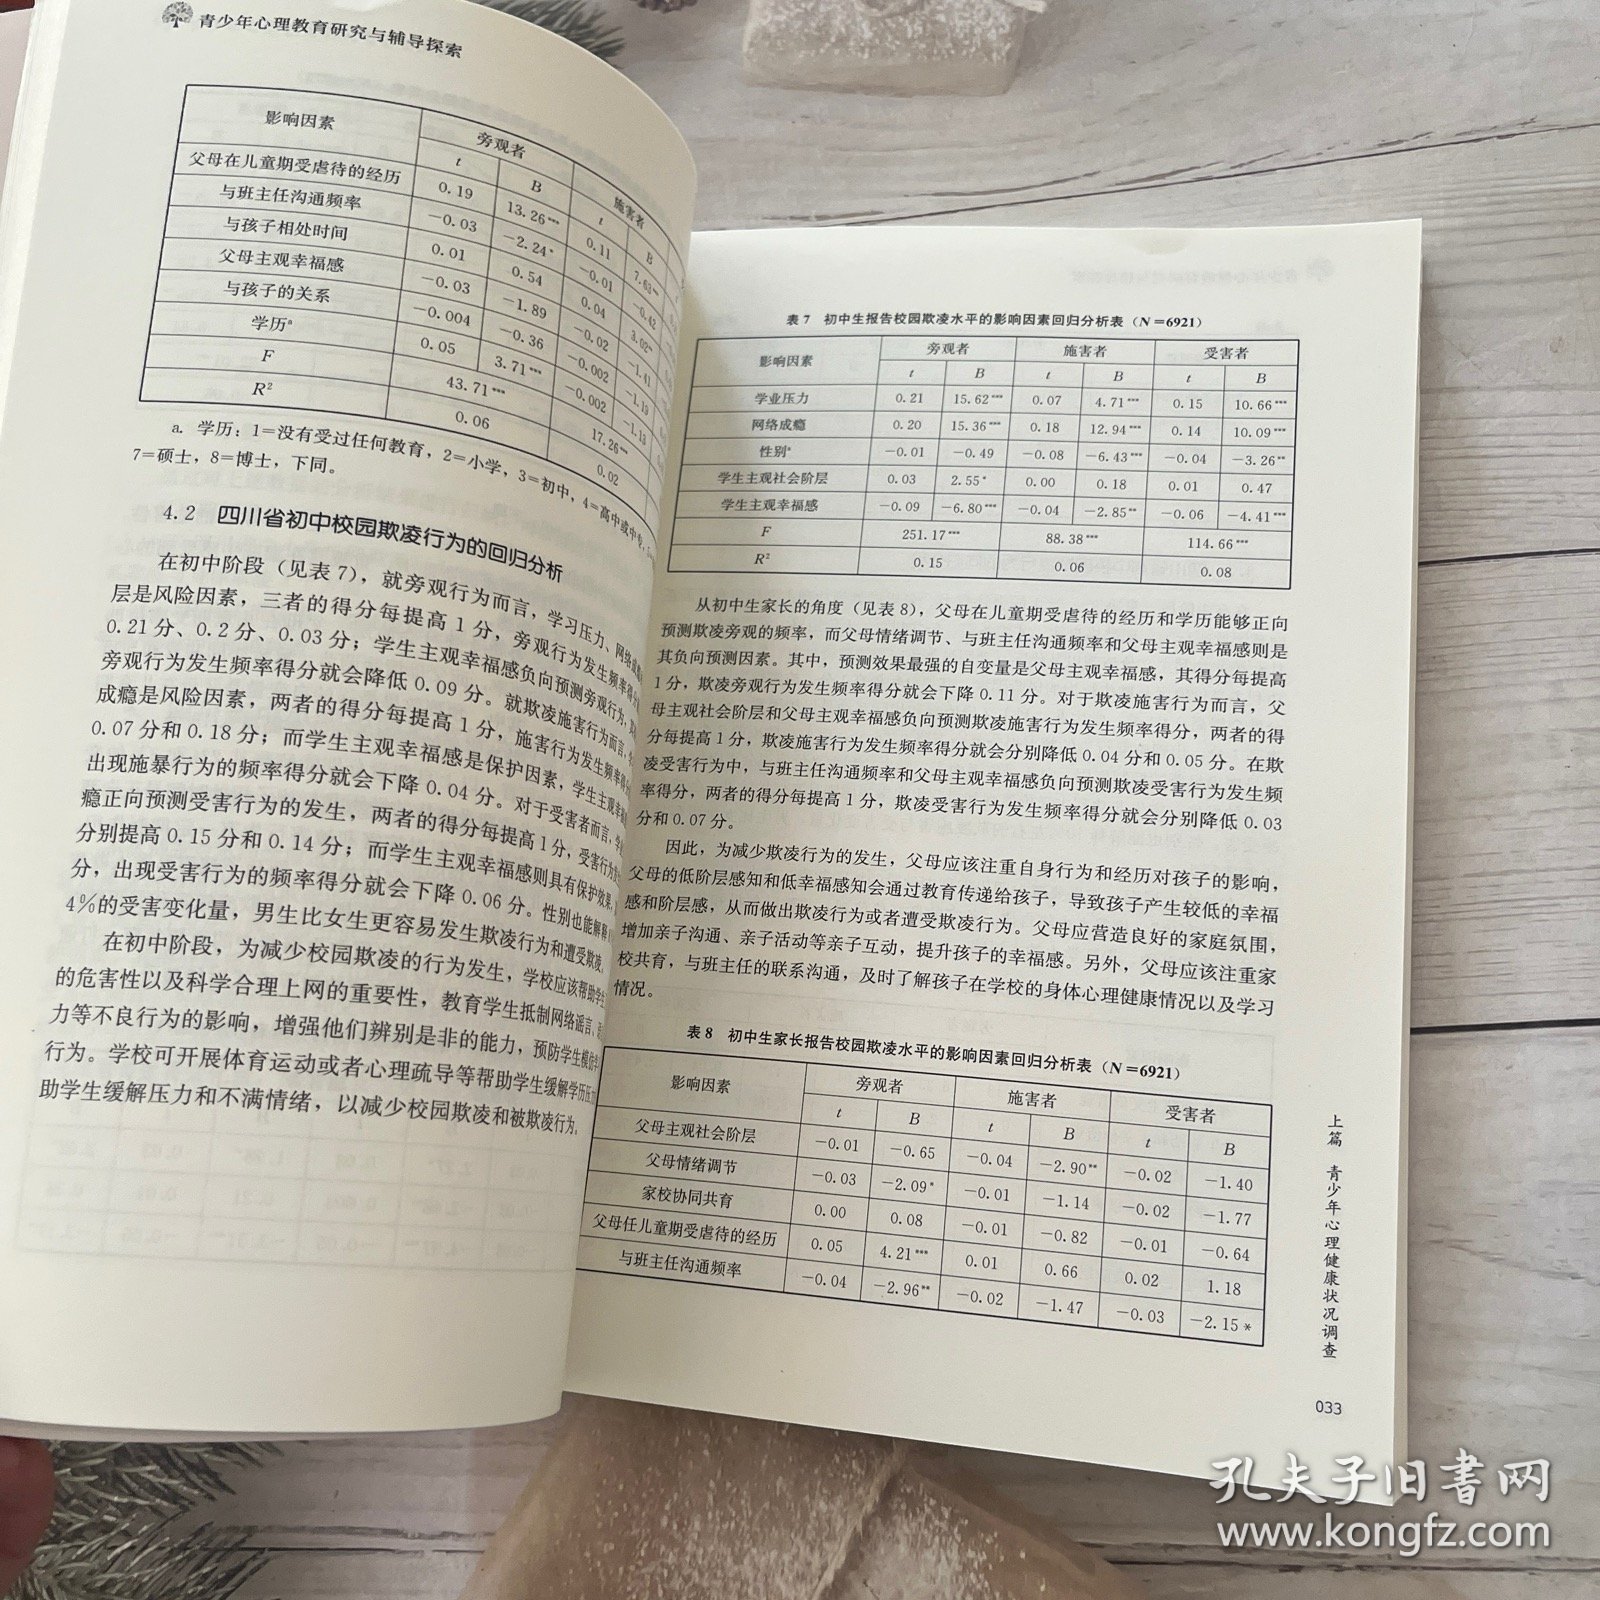 青少年心理教育研究与辅导探索
影响因素 旁观者 施害者
t B t B
父母在儿童期受虐待的经历 0.19 13.26*** 0.11 7.63***
与班主任沟通频率 -0.03 -2.24* -0.01 -0.42
与孩子相处时间 0.01 0.54 0.04 3.02**
父母主观幸福感 -0.03 -1.89 -0.02 -1.41
与孩子的关系 -0.004 -0.36 -0.002 -1.19
学历a 0.05 3.71*** -0.002 -1.13
F 43.71*** 17.26***
R² 0.06 0.02
a. 学历：1=没有受过任何教育，2=小学，3=初中，4=高中或中专，
7=硕士，8=博士，下同。
4.2 四川省初中校园欺凌行为的回归分析
在初中阶段（见表7），就旁观行为而言，学习压力、网络成瘾
层是风险因素，三者的得分每提高1分，旁观行为发生频率得分
0.21分、0.2分、0.03分；学生主观幸福感负向预测旁观行为，
旁观行为发生频率得分就会降低0.09分。就欺凌施害行为而言，
成瘾是风险因素，两者的得分每提高1分，施害行为发生频率得分
0.07分和0.18分；而学生主观幸福感是保护因素，学生主观幸福
出现施暴行为的频率得分就会下降0.04分。对于受害者而言，学
瘾正向预测受害行为的发生，两者的得分每提高1分，受害行为发
分别提高0.15分和0.14分；而学生主观幸福感则具有保护效果，
分，出现受害行为的频率得分就会下降0.06分。性别也能解释
4%的受害变化量，男生比女生更容易发生欺凌行为和遭受欺凌。
在初中阶段，为减少校园欺凌的行为发生，学校应该帮助学生
的危害性以及科学合理上网的重要性，教育学生抵制网络谣言、
力等不良行为的影响，增强他们辨别是非的能力，预防学生模仿
行为。学校可开展体育运动或者心理疏导等帮助学生缓解学历压
助学生缓解压力和不满情绪，以减少校园欺凌和被欺凌行为。
表7 初中生报告校园欺凌水平的影响因素回归分析表（N=6921）
影响因素 旁观者 施害者 受害者
t B t B t B
学业压力 0.21 15.62*** 0.07 4.71*** 0.15 10.66***
网络成瘾 0.20 15.36*** 0.18 12.94*** 0.14 10.09***
性别a -0.01 -0.49 -0.08 -6.43*** -0.04 -3.26**
学生主观社会阶层 0.03 2.55* 0.00 0.18 0.01 0.47
学生主观幸福感 -0.09 -6.80*** -0.04 -2.85** -0.06 -4.41***
F 251.17*** 88.38*** 114.66***
R² 0.15 0.06 0.08
从初中生家长的角度（见表8），父母在儿童期受虐待的经历和学历能够正向
预测欺凌旁观的频率，而父母情绪调节、与班主任沟通频率和父母主观幸福感则是
其负向预测因素。其中，预测效果最强的自变量是父母主观幸福感，其得分每提高
1分，欺凌旁观行为发生频率得分就会下降0.11分。对于欺凌施害行为而言，父
母主观社会阶层和父母主观幸福感负向预测欺凌施害行为发生频率得分，两者的得
分每提高1分，欺凌施害行为发生频率得分就会分别降低0.04分和0.05分。在欺
凌受害行为中，与班主任沟通频率和父母主观幸福感负向预测欺凌受害行为发生频
率得分，两者的得分每提高1分，欺凌受害行为发生频率得分就会分别降低0.03
分和0.07分。
因此，为减少欺凌行为的发生，父母应该注重自身行为和经历对孩子的影响，
父母的低阶层感知和低幸福感知会通过教育传递给孩子，导致孩子产生较低的幸福
感和阶层感，从而做出欺凌行为或者遭受欺凌行为。父母应营造良好的家庭氛围，
增加亲子沟通、亲子活动等亲子互动，提升孩子的幸福感。另外，父母应该注重家
校共育，与班主任的联系沟通，及时了解孩子在学校的身体心理健康情况以及学习
情况。
表8 初中生家长报告校园欺凌水平的影响因素回归分析表（N=6921）
影响因素 旁观者 施害者 受害者
t B t B t B
父母主观社会阶层 -0.01 -0.65 -0.04 -2.90** -0.02 -1.40
父母情绪调节 -0.03 -2.09* -0.01 -1.14 -0.02 -1.77
家校协同共育 0.00 0.08 -0.01 -0.82 -0.01 -0.64
父母任儿童期受虐待的经历 0.05 4.21*** 0.01 0.66 0.02 1.18
与班主任沟通频率 -0.04 -2.96** -0.02 -1.47 -0.03 -2.15*
上篇 青少年心理健康状况调查
033
孔夫子旧书网
www.kongfz.com